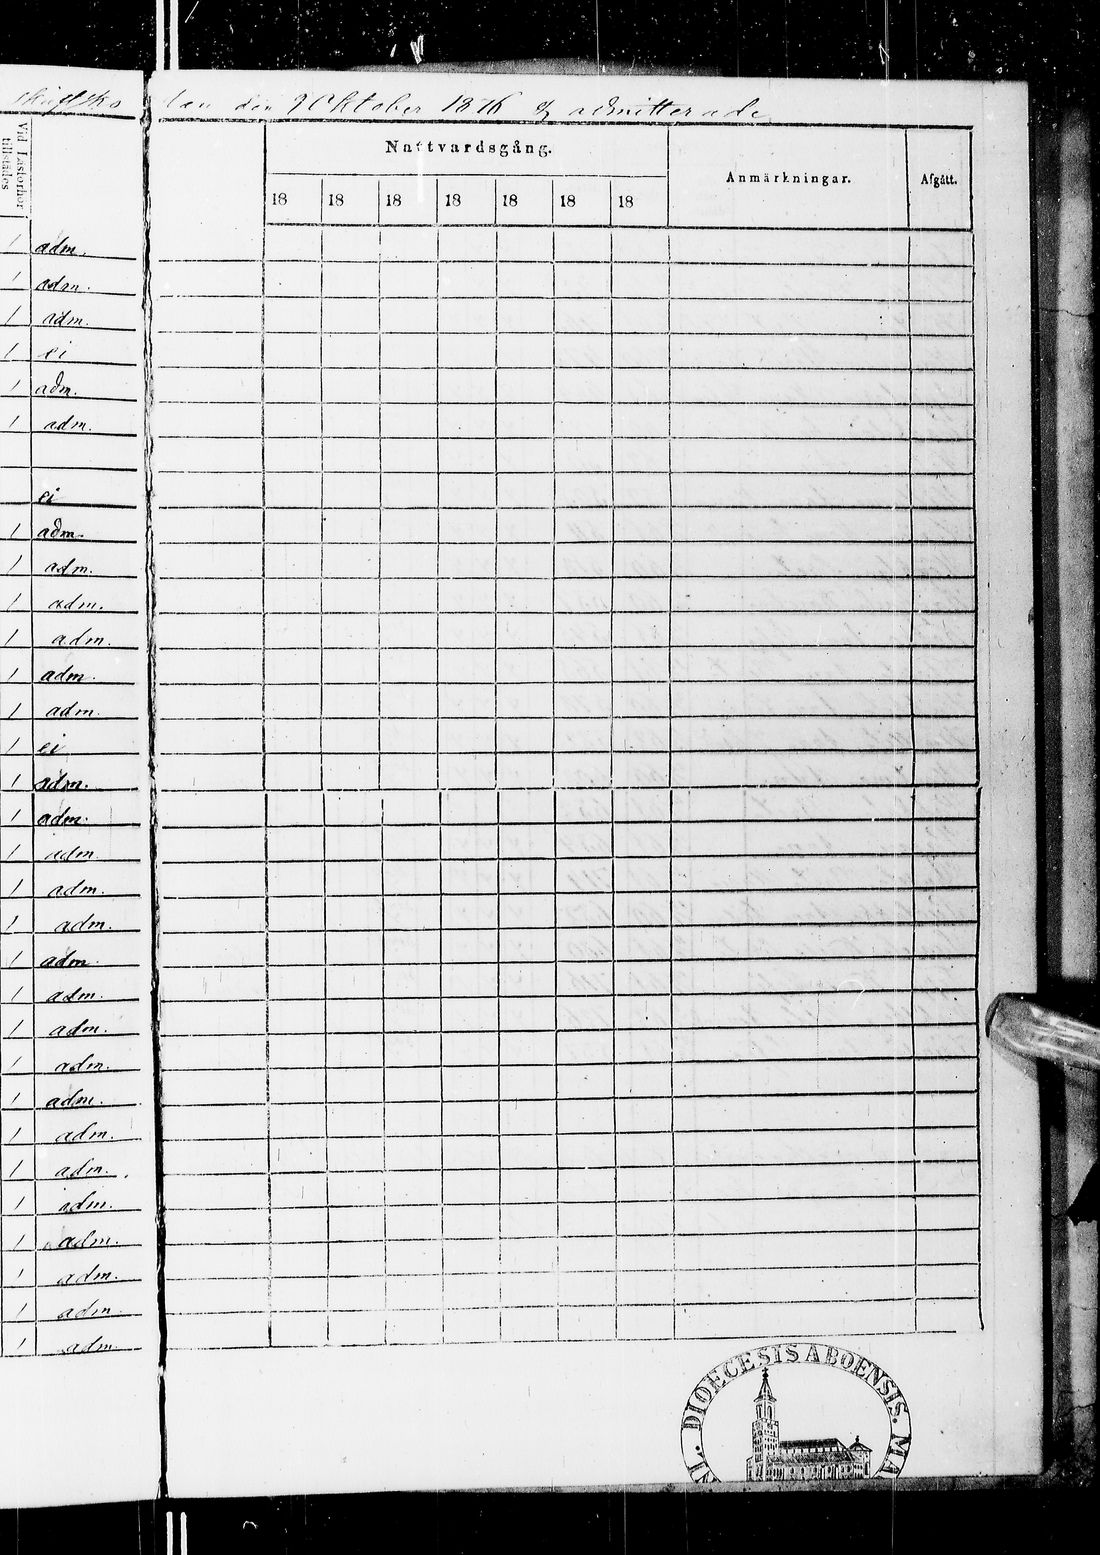 skriftsko lan den 9 Oktober 1876 & admitterade
Vid Läsförhör tillstädes
Nattvardsgång.
Anmärkningar.
Afgått.
18 18 18 18 18 18 18
1 adm.
1 adm.
1 adm.
1 ei
1 adm.
1 adm.
ei
1 adm.
1 adm.
1 adm.
1 adm.
1 adm.
1 adm.
1 ei
1 adm.
1 adm.
1 adm.
1 adm.
1 adm.
1 adm.
1 adm.
1 adm.
1 adm.
1 adm.
1 adm.
1 adm.
1 adm.
1 adm.
1 adm.
1 adm
1 adm.
DIOECESIS ABOENSIS. MA